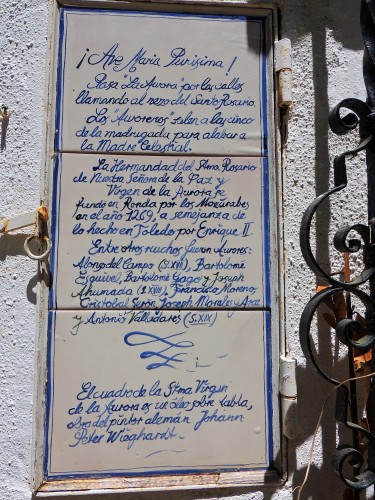 ¡Ave Maria Purisima!
Pasa "La Aurora" por las calles
llamando al rezo del Santo Rosario.
Los "Auroreros" salen a las cinco
de la madrugada para alabar a
la Madre Celestial.
La Hermandad del Stmo. Rosario
de Nuestra Señora de la Paz y
Virgen de la Aurora se
fundó en Ronda por los Mozárabes
en el año 1269, a semejanza de
lo hecho en Toledo por Enrique II.
Entre otros muchos fueron Aurores:
Alonso del Campo (S. XVII), Bartolomé
Esquivel, Bartolomé Gago y Joseph
Ahumada (S. XVIII), Francisco Moreno,
Cristobal Serón, Joseph Morales y
y Antonio Valladares (S. XIX)
El cuadro de la Stma Virgen
de la Aurora es un óleo sobre tabla,
obra del pintor alemán Johann
Peter